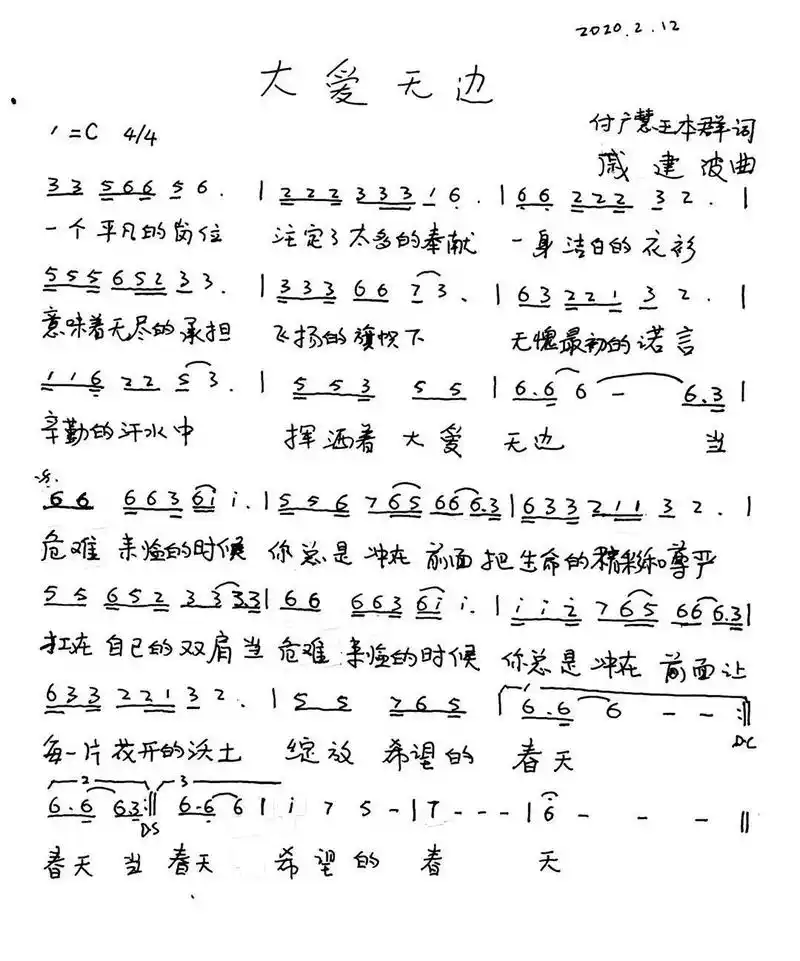 2020.2.12
大爱无边
1=C 4/4
付广慧王本群词
戚建波曲
3 3 5 6 6 5 6. | 2 2 2 3 3 3 1 6. | 6 6 2 2 2 3 2. |
一个平凡的岗位 注定了太多的奉献 一身洁白的衣衫
5 5 5 6 5 2 3 3. | 3 3 3 6 6 7 3. | 6 3 2 2 1 3 2. |
意味着无尽的承担 飞扬的旗帜下 无愧最初的诺言
1 1 6 2 2 5 3. | 5 5 3 5 5 | 6.6 6 - 6.3 |
辛勤的汗水中 挥洒着大爱无边 当
6 6 6 6 3 6 i i. | 5 5 6 7 6 5 6 6 6.3 | 6 3 3 2 1 1 3 2. |
危难来临的时候 你总是冲在前面把生命的精彩和尊严
5 5 6 5 2 3 3 3.3 | 6 6 6 6 3 6 i i. | i i 2 7 6 5 6 6 6.3 |
扛在自己的双肩当危难来临的时候 你总是冲在前面让
6 3 3 2 2 1 3 2. | 5 5 7 6 5 | 1 6.6 6 - - :||
DC
每一片花开的沃土 绽放希望的春天
2 3
6.6 6 3 :|| 6.6 6 | i 7 5 - | 7 - - - | 6 - - - ||
DS
春天当春天 希望的春天